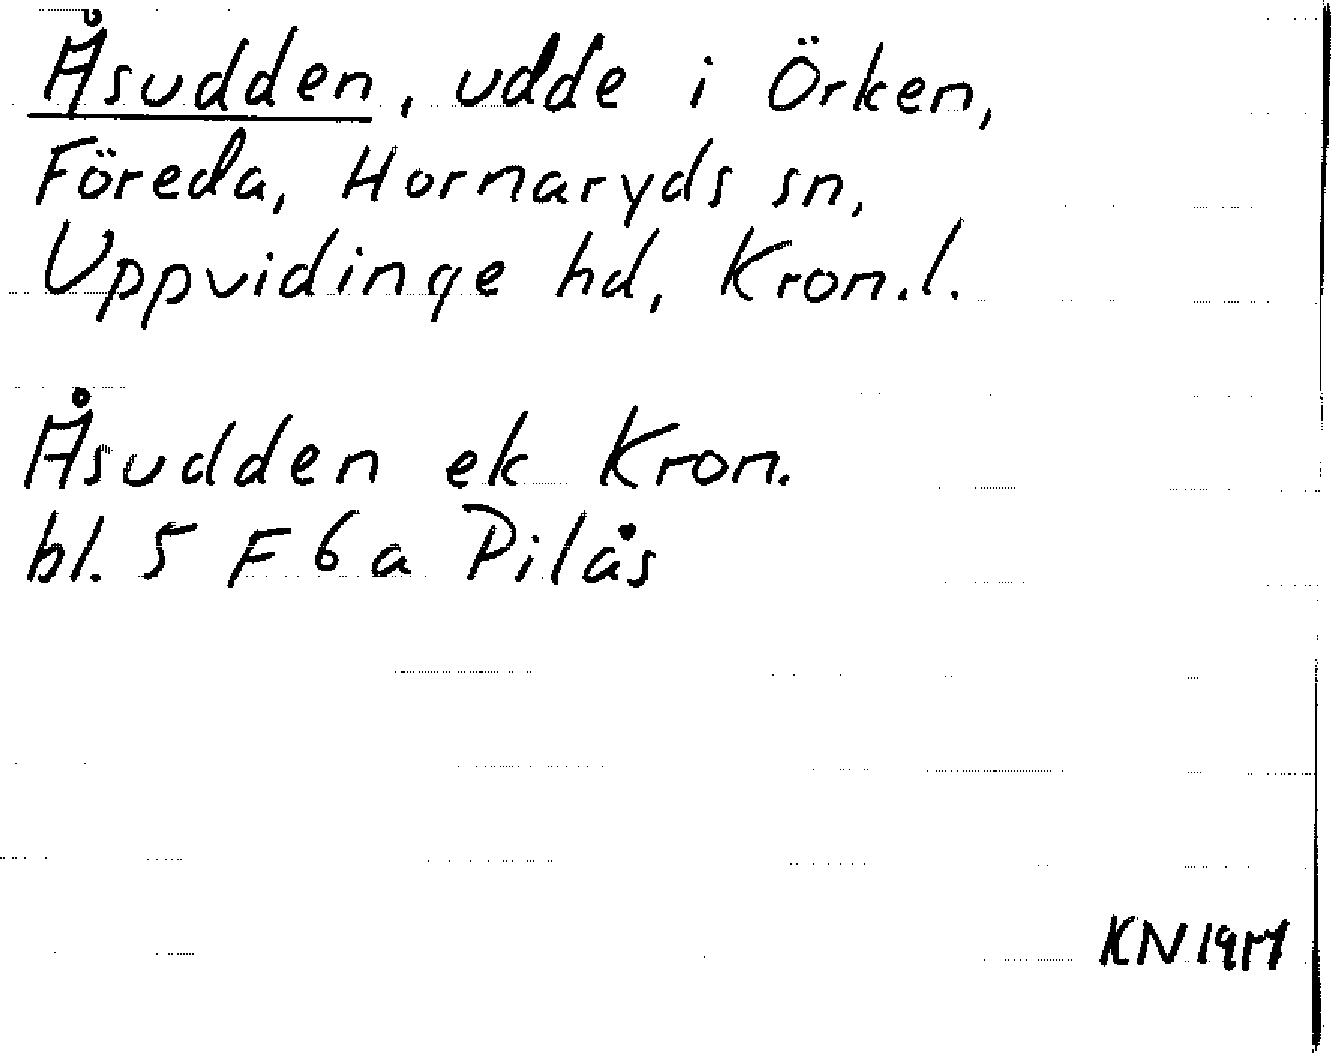 Åsudden, udde i Örken,
Föreda, Hornaryds sn,
Uppvidinge hd, Kron.l.
Åsudden ek Kron.
bl. 5 F 6 a Pilås
KN